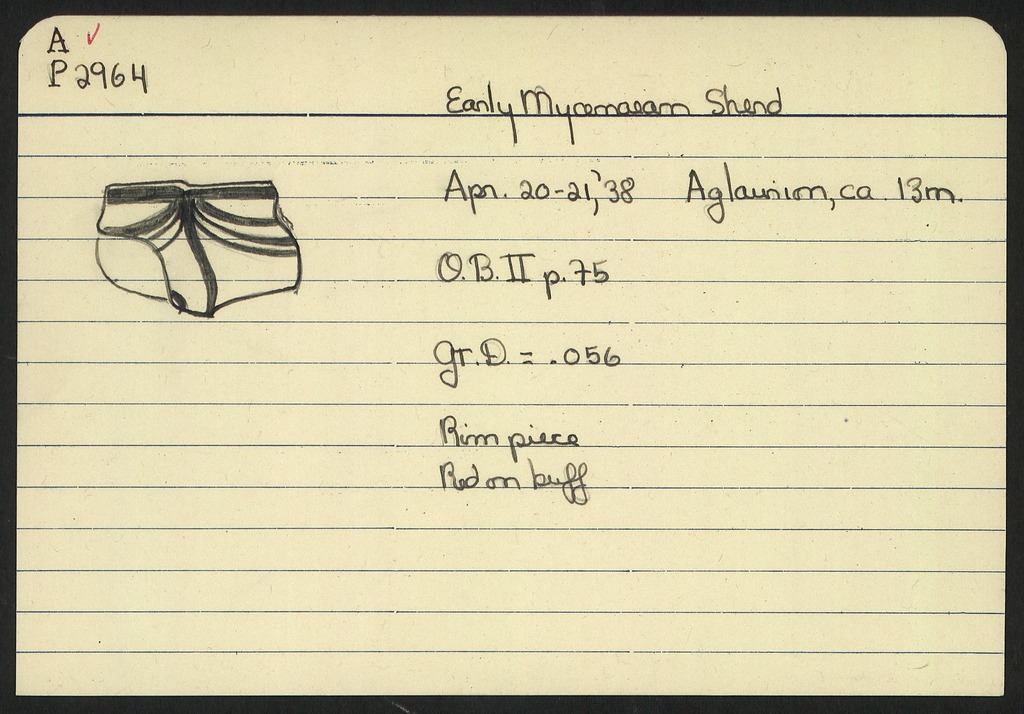 A ✓
P 2964
Early Mycenaean Sherd
Apr. 20-21, '38 Aglaurion, ca. 13m.
O.B. II p. 75
Gr. D. = .056
Rim piece
Red on buff